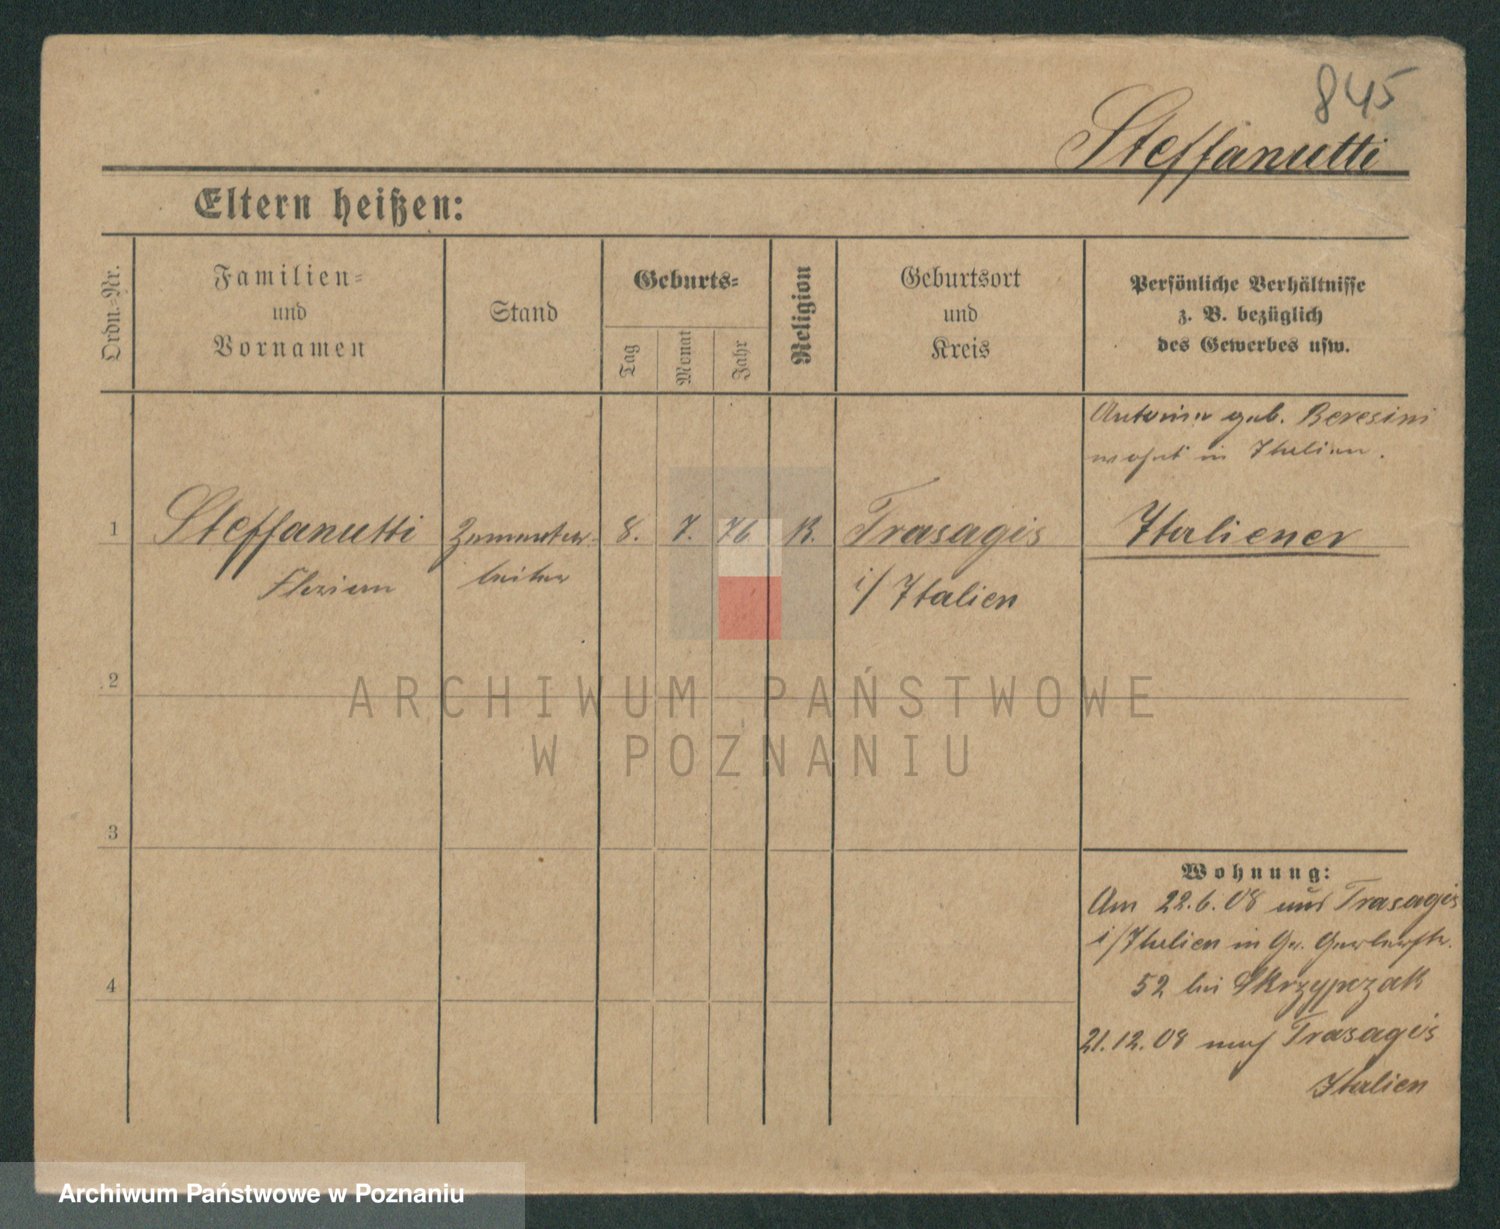 845
Steffanutti
Eltern heißen:
Ordn.-Nr.
Familien-
und
Vornamen
Stand
Geburts-
Tag
Monat
Jahr
Religion
Geburtsort
und
Kreis
Persönliche Verhältnisse
z. B. bezüglich
des Gewerbes usw.
geb. Beresini
wohnt in Italien.
1 Steffanutti 8. 7. 76 K. Trasagis Italiener
Florian i/Italien
2
3
4
ARCHIWUM PAŃSTWOWE
W POZNANIU
Wohnung:
Am 22.6.08 aus Trasagis
i/Italien in
52 bei Skrzypczak
21.12.08 nach Trasagis
Italien
Archiwum Państwowe w Poznaniu